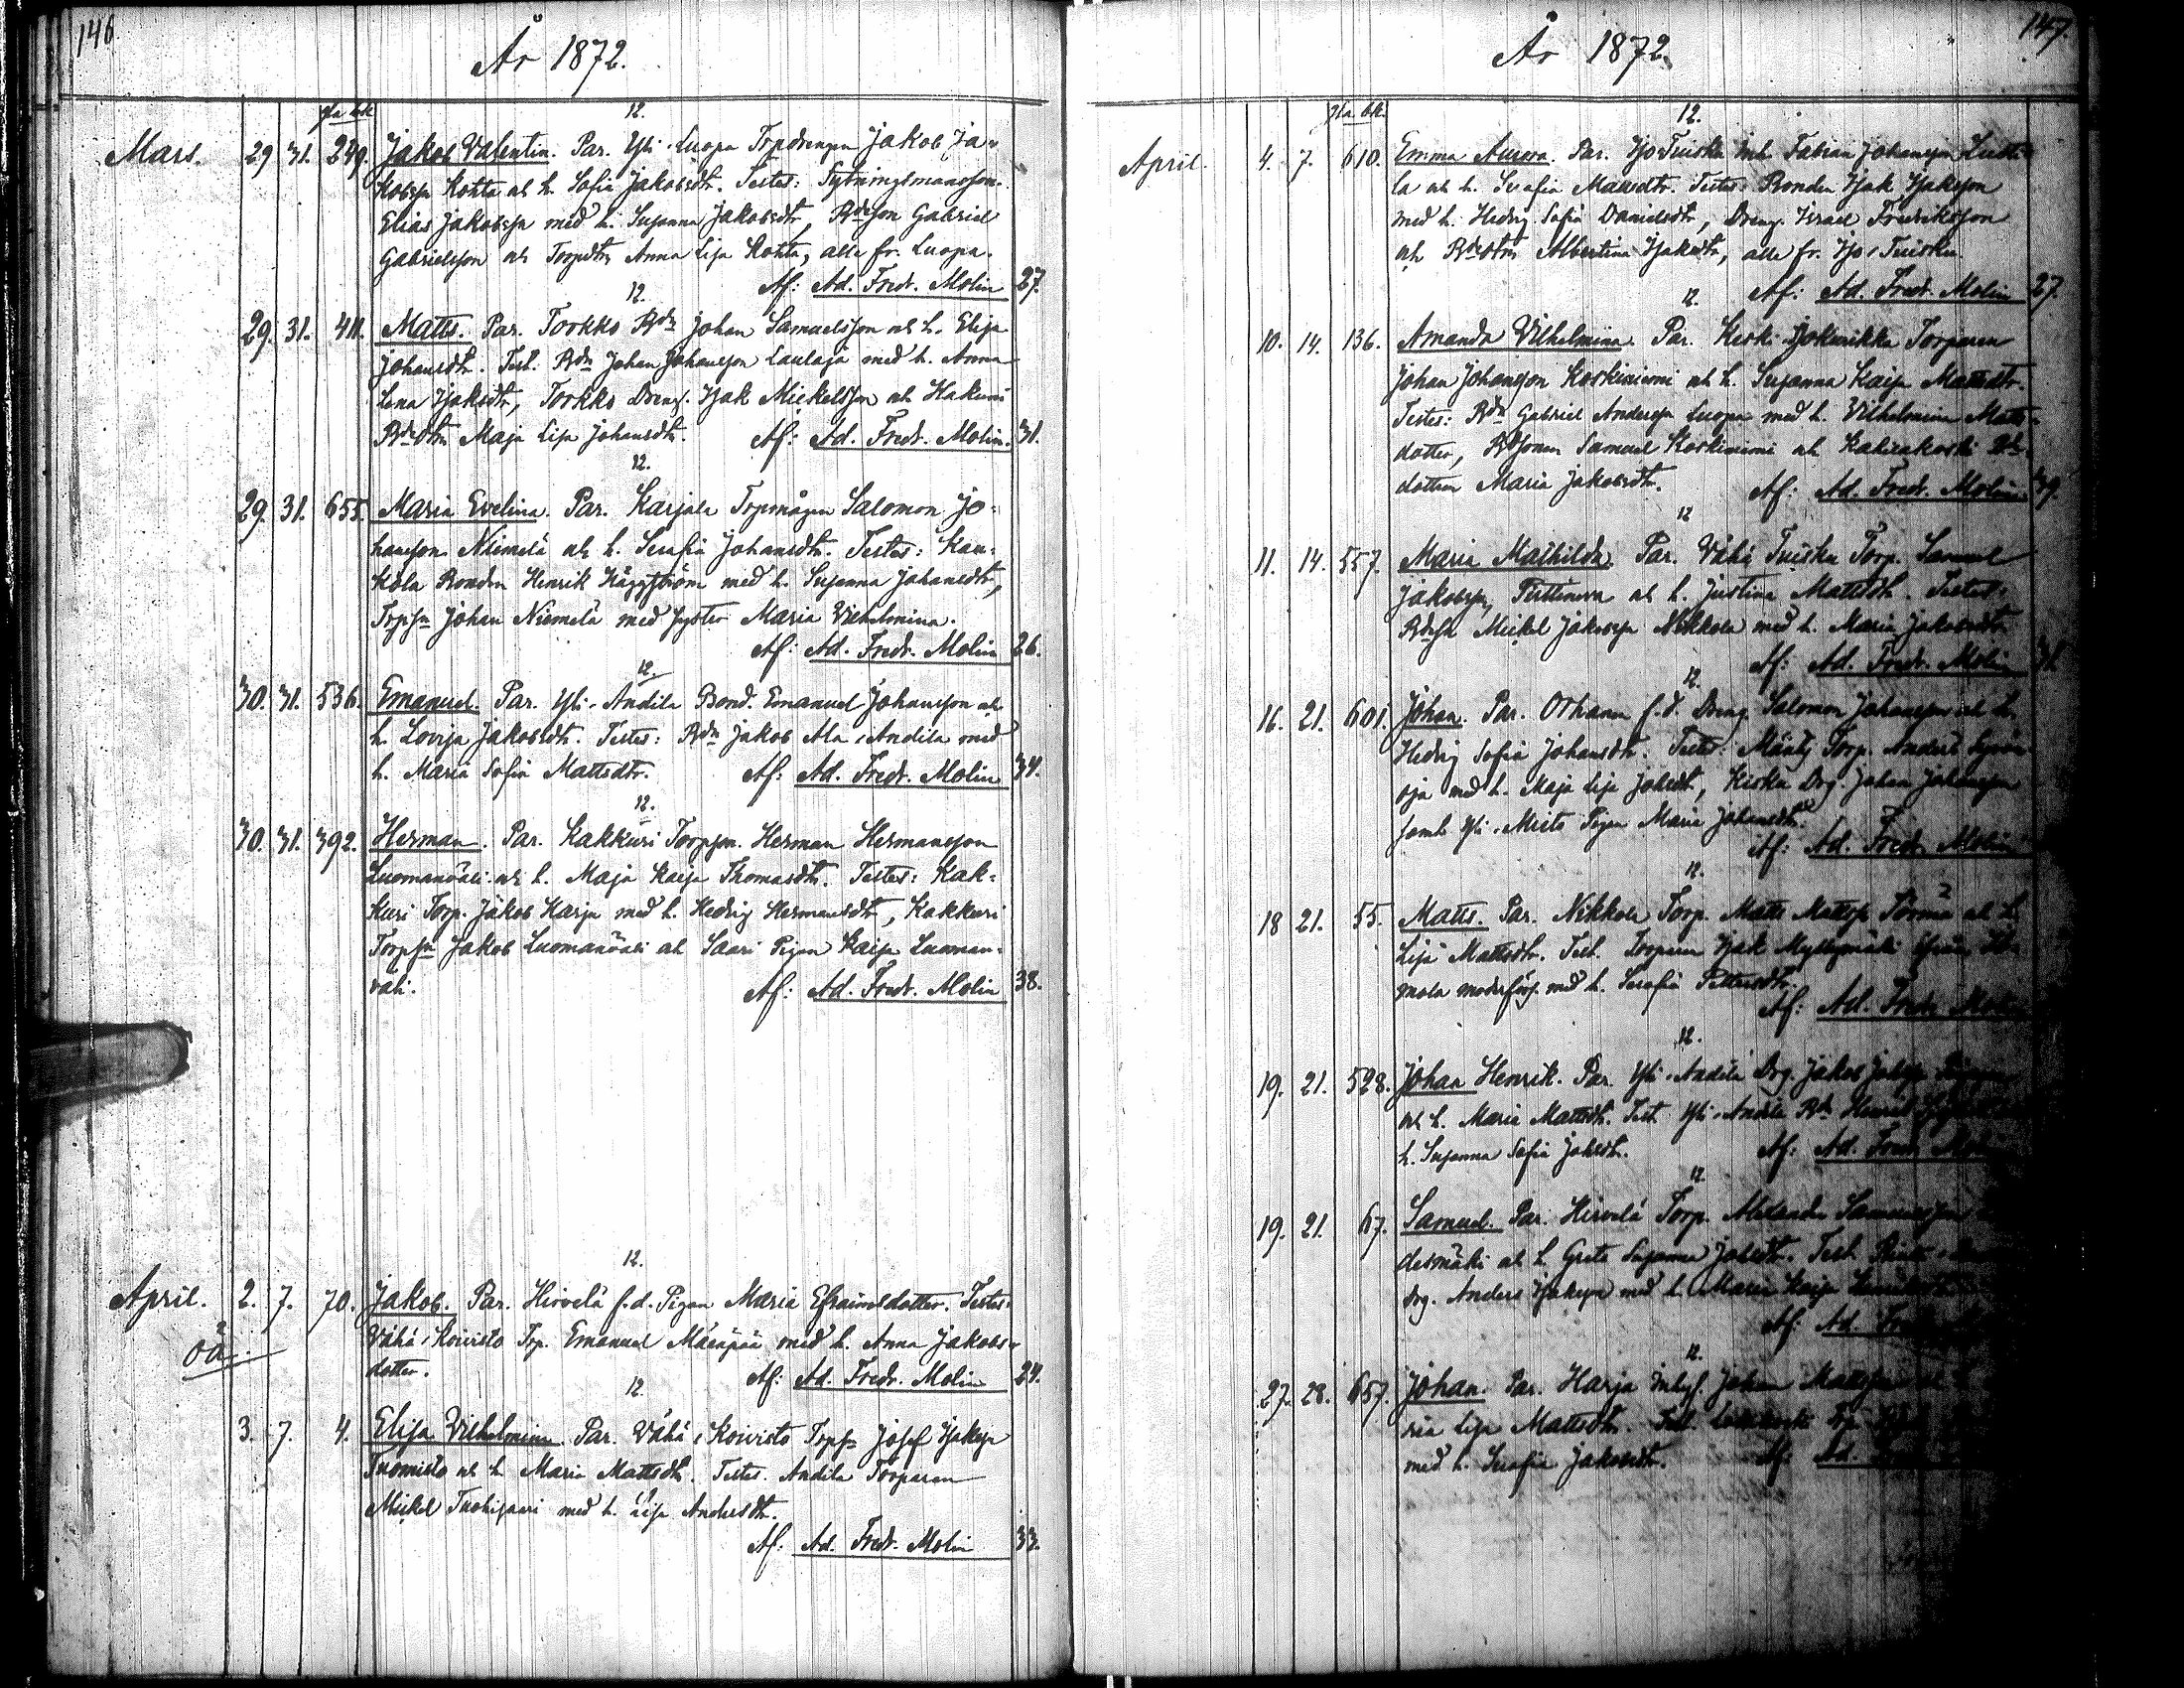 146
År 1872.
pla bk
12.
Mars. 29 31. 249. Jakob Valentin. Par. Yli-Luopa Torpdrengen Jakob Ja-
kobsson Kohta och h. Sofia Jakobsdtr. Testes: Sytningsmansson
Elias Jakobsson med h. Susanna Jakobsdtr, Bdesson Gabriel
Gabrielsson och Torpdtrn Anna Lisa Kohta, alla fr. Luopa.
Af: Ad. Fredr. Molin 27.
12.
29. 31. 411. Matts. Par. Torkko Bdn Johan Samuelsson och h. Elisa
Johansdtr. Test. Bdn Johan Johansson Laulaja med h. Anna
Lena Isaksdtr, Torkko Dreng. Isak Mickelsson och Hakuni
Bdedtrn Maja Lisa Johansdtr. Af: Ad. Fredr. Molin. 31.
12.
29. 31. 655. Maria Evelina. Par. Karjala Torpmågen Salomon Jo-
hansson Niemelä och h. Serafia Johansdtr. Testes: Kau-
kola Bonden Henrik Häggström med h. Susanna Johansdtr,
Torpsn Johan Niemelä med syster Maria Vilhelmina.
Af: Ad. Fredr. Molin 26.
12.
30. 31. 536. Emanuel. Par. Yli-Andila Bond. Emanuel Johansson och
h. Lovisa Jakobsdtr. Testes: Bdn Jakob Ala-Andila med
h. Maria Sofia Mattsdtr. Af: Ad. Fredr. Molin 34.
12.
30. 31. 392. Herman. Par. Kakkuri Torpson. Herman Hermansson
Luomanwäli och h. Maja Kaisa Thomasdtr. Testes: Kak-
kuri Torp. Jakob Harju med h. Hedvig Hermansdtr, Kakkuri
Torpsn Jakob Luomanwäli och Saari Pigan Kaisa Luoman-
väli. Af: Ad. Fredr. Molin 38.
12.
April. 2. 7. 70. Jakob. Par. Hirvelä f.d. Pigan Maria Efraimsdotter. Testes:
oä. Vähä-Koivisto Torp. Emanuel Mäenpää med h. Anna Jakobs-
dotter. Af: Ad. Fredr. Molin 24.
12.
3. 7. 4. Elisa Vilhelmina. Par. Vähä-Koivisto Torpsn Josef Isaksson
Tuomisto och h. Maria Mattsdtr. Testes. Andila Torparen
Mickel Tuohisaari med h. Lisa Andersdtr.
Af. Ad. Fredr. Molin 33.
147.
År 1872.
pla bk.
12.
April. 4. 7. 610. Emma Aurora. Par. Iso-Tuisku Inh. Fabian Johansson
la och h. Serafia Mattsdtr. Testes: Bonden Isak Isaksson
med h. Hedvig Sofia Danielsdtr, Dreng. Israel Fredriksson
och Bdedtrn Albertina Isaksdtr, alla fr. Iso-Tuisku.
Af: Ad. Fredr. Molin 27.
12.
10. 14. 136. Amanda Vilhelmina. Par. Keski-Jokurikka Torparen
Johan Johansson Koskiniemi och h. Susanna Kaisa Mattsdtr.
Testes: Bdn Gabriel Andersson Luopa med h. Vilhelmina Matts-
dotter, Bdsonen Samuel Koskiniemi och Kahilakoski Bde-
dottern Maria Jakobsdtr. Af: Ad. Fredr. Molin 39.
12
11. 14. 557. Maria Mathilda. Par. Vähä Tuisku Torp. Samuel
Jakobsson och h. Justina Mattsdtr. Testes:
Bdesn Mickel Jakobsson Nikkola med h. Maria Jakobsdtr.
Af: Ad. Fredr. Molin 31.
12.
16. 21. 601. Johan. Par. Orhanen f.d. Dreng Salomon Johansson och h.
Hedvig Sofia Johansdtr. Testes: Mänty Torp. Anders Syvän-
oja med h. Maja Lisa Johsdtr, Kisku Drg. Johan Johansson
samt Yli-Mieto Pigan Maria Johansdtr.
Af: Ad. Fredr. Molin
12.
18 21. 55. Matts. Par. Nikkola Torp. Matts Mattsson Törmä och h.
Lisa Mattsdtr. Test. Torparen Isak Myllymäki
mola moderförs. med h. Serafia Pettersdtr.
Af: Ad. Fredr. Molin
12.
19. 21. 528. Johan Henrik. Par. Yli-Andila Drg. Jakob
och h. Maria Mattsdtr. Test. Yli-Andila Bdn Henrik
h. Susanna Sofia Johsdtr. Af: Ad. Fredr. Molin
12.
19. 21. 67. Samuel. Par. Hirvelä Torp. Alexander Samuelsson
desmäki och h. Greta Susanna Johsdtr. Test.
drg. Anders Isaksson med h. Maria Kaisa
Af: Ad. Fredr.
12.
27. 28. 657. Johan. Par. Harja Inhys. Johan Mattsson och h.
ria Lisa Mattsdtr. Test.
med h. Serafia Jakobsdtr. Af: Ad.